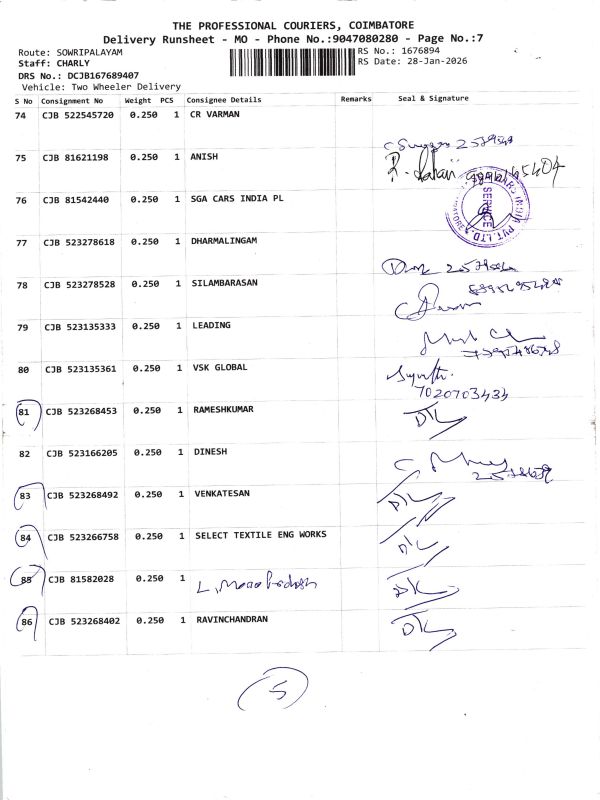 THE PROFESSIONAL COURIERS, COIMBATORE
Delivery Runsheet - MO - Phone No.:9047080280 - Page No.:7
Route: SOWRIPALAYAM
RS No.: 1676894
Staff: CHARLY
RS Date: 28-Jan-2026
DRS No.: DCJB167689407
Vehicle: Two Wheeler Delivery
S No Consignment No Weight PCS Consignee Details Remarks Seal & Signature
74 CJB 522545720 0.250 1 CR VARMAN
75 CJB 81621198 0.250 1 ANISH
76 CJB 81542440 0.250 1 SGA CARS INDIA PL
SERVICE
77 CJB 523278618 0.250 1 DHARMALINGAM
78 CJB 523278528 0.250 1 SILAMBARASAN
79 CJB 523135333 0.250 1 LEADING
80 CJB 523135361 0.250 1 VSK GLOBAL
7020703434
81 CJB 523268453 0.250 1 RAMESHKUMAR
82 CJB 523166205 0.250 1 DINESH
83 CJB 523268492 0.250 1 VENKATESAN
84 CJB 523266758 0.250 1 SELECT TEXTILE ENG WORKS
85 CJB 81582028 0.250 1
86 CJB 523268402 0.250 1 RAVINCHANDRAN
5